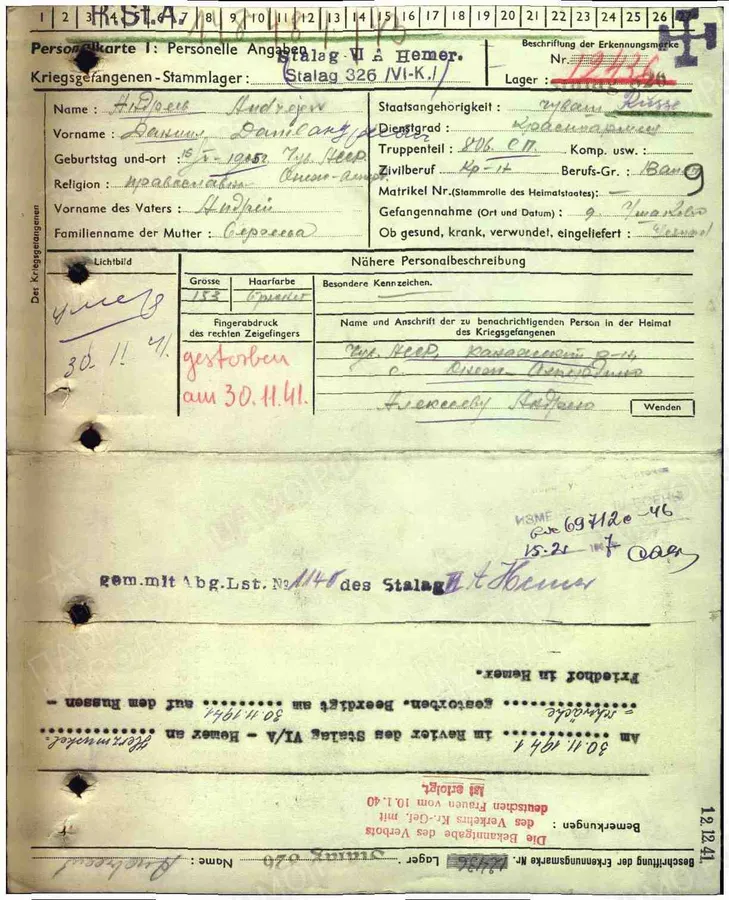 1 2 3 4 5 6 7 8 9 10 11 12 13 14 15 16 17 18 19 20 21 22 23 24 25 26 27
Kr.St.A.
Personalkarte I: Personelle Angaben
Stalag VI A Hemer.
Kriegsgefangenen-Stammlager:
(Stalag 326 /VI-K./)
Beschriftung der Erkennungsmarke
Nr. 12436
Lager: Stalag 326
Name: Андреев Andrejew
Vorname: Данил Danil
Geburtstag und -ort: Чув. АССР.
Religion:
Vorname des Vaters: Андрей
Familienname der Mutter: Сергеева
Staatsangehörigkeit: чуваш Russe
Dienstgrad: Красноармеец
Truppenteil: 806. СП. Komp. usw.:
Zivilberuf: Кр-н Berufs-Gr.: 9
Matrikel Nr. (Stammrolle des Heimatstaates): —
Gefangennahme (Ort und Datum):
Ob gesund, krank, verwundet, eingeliefert: Gesund
Des Kriegsgefangenen
Lichtbild
умер
30. 11. 41.
Nähere Personalbeschreibung
Grösse
153
Haarfarbe
Besondere Kennzeichen.
Fingerabdruck
des rechten Zeigefingers
gestorben
am 30.11.41.
Name und Anschrift der zu benachrichtigenden Person in der Heimat
des Kriegsgefangenen
Чув. АССР,
с.
Алексееву Андрею
Wenden
69712с-46
gem.mit Abg.Lst. № 1145 des Stalag VI A Hemer
Am 30.11.1941 im Revier des Stalag VI/A - Hemer an Herzmuskel=
=schwäche gestorben. Beerdigt am 30.11.1941 auf dem Russen -
Friedhof in Hemer.
Bemerkungen:
Die Bekanntgabe des Verbots
des Verkehrs Kr.-Gef. mit
deutschen Frauen vom 10.1.40
ist erfolgt.
12.12.41.
Beschriftung der Erkennungsmarke Nr. 12436 Lager: Stalag 326 Name: